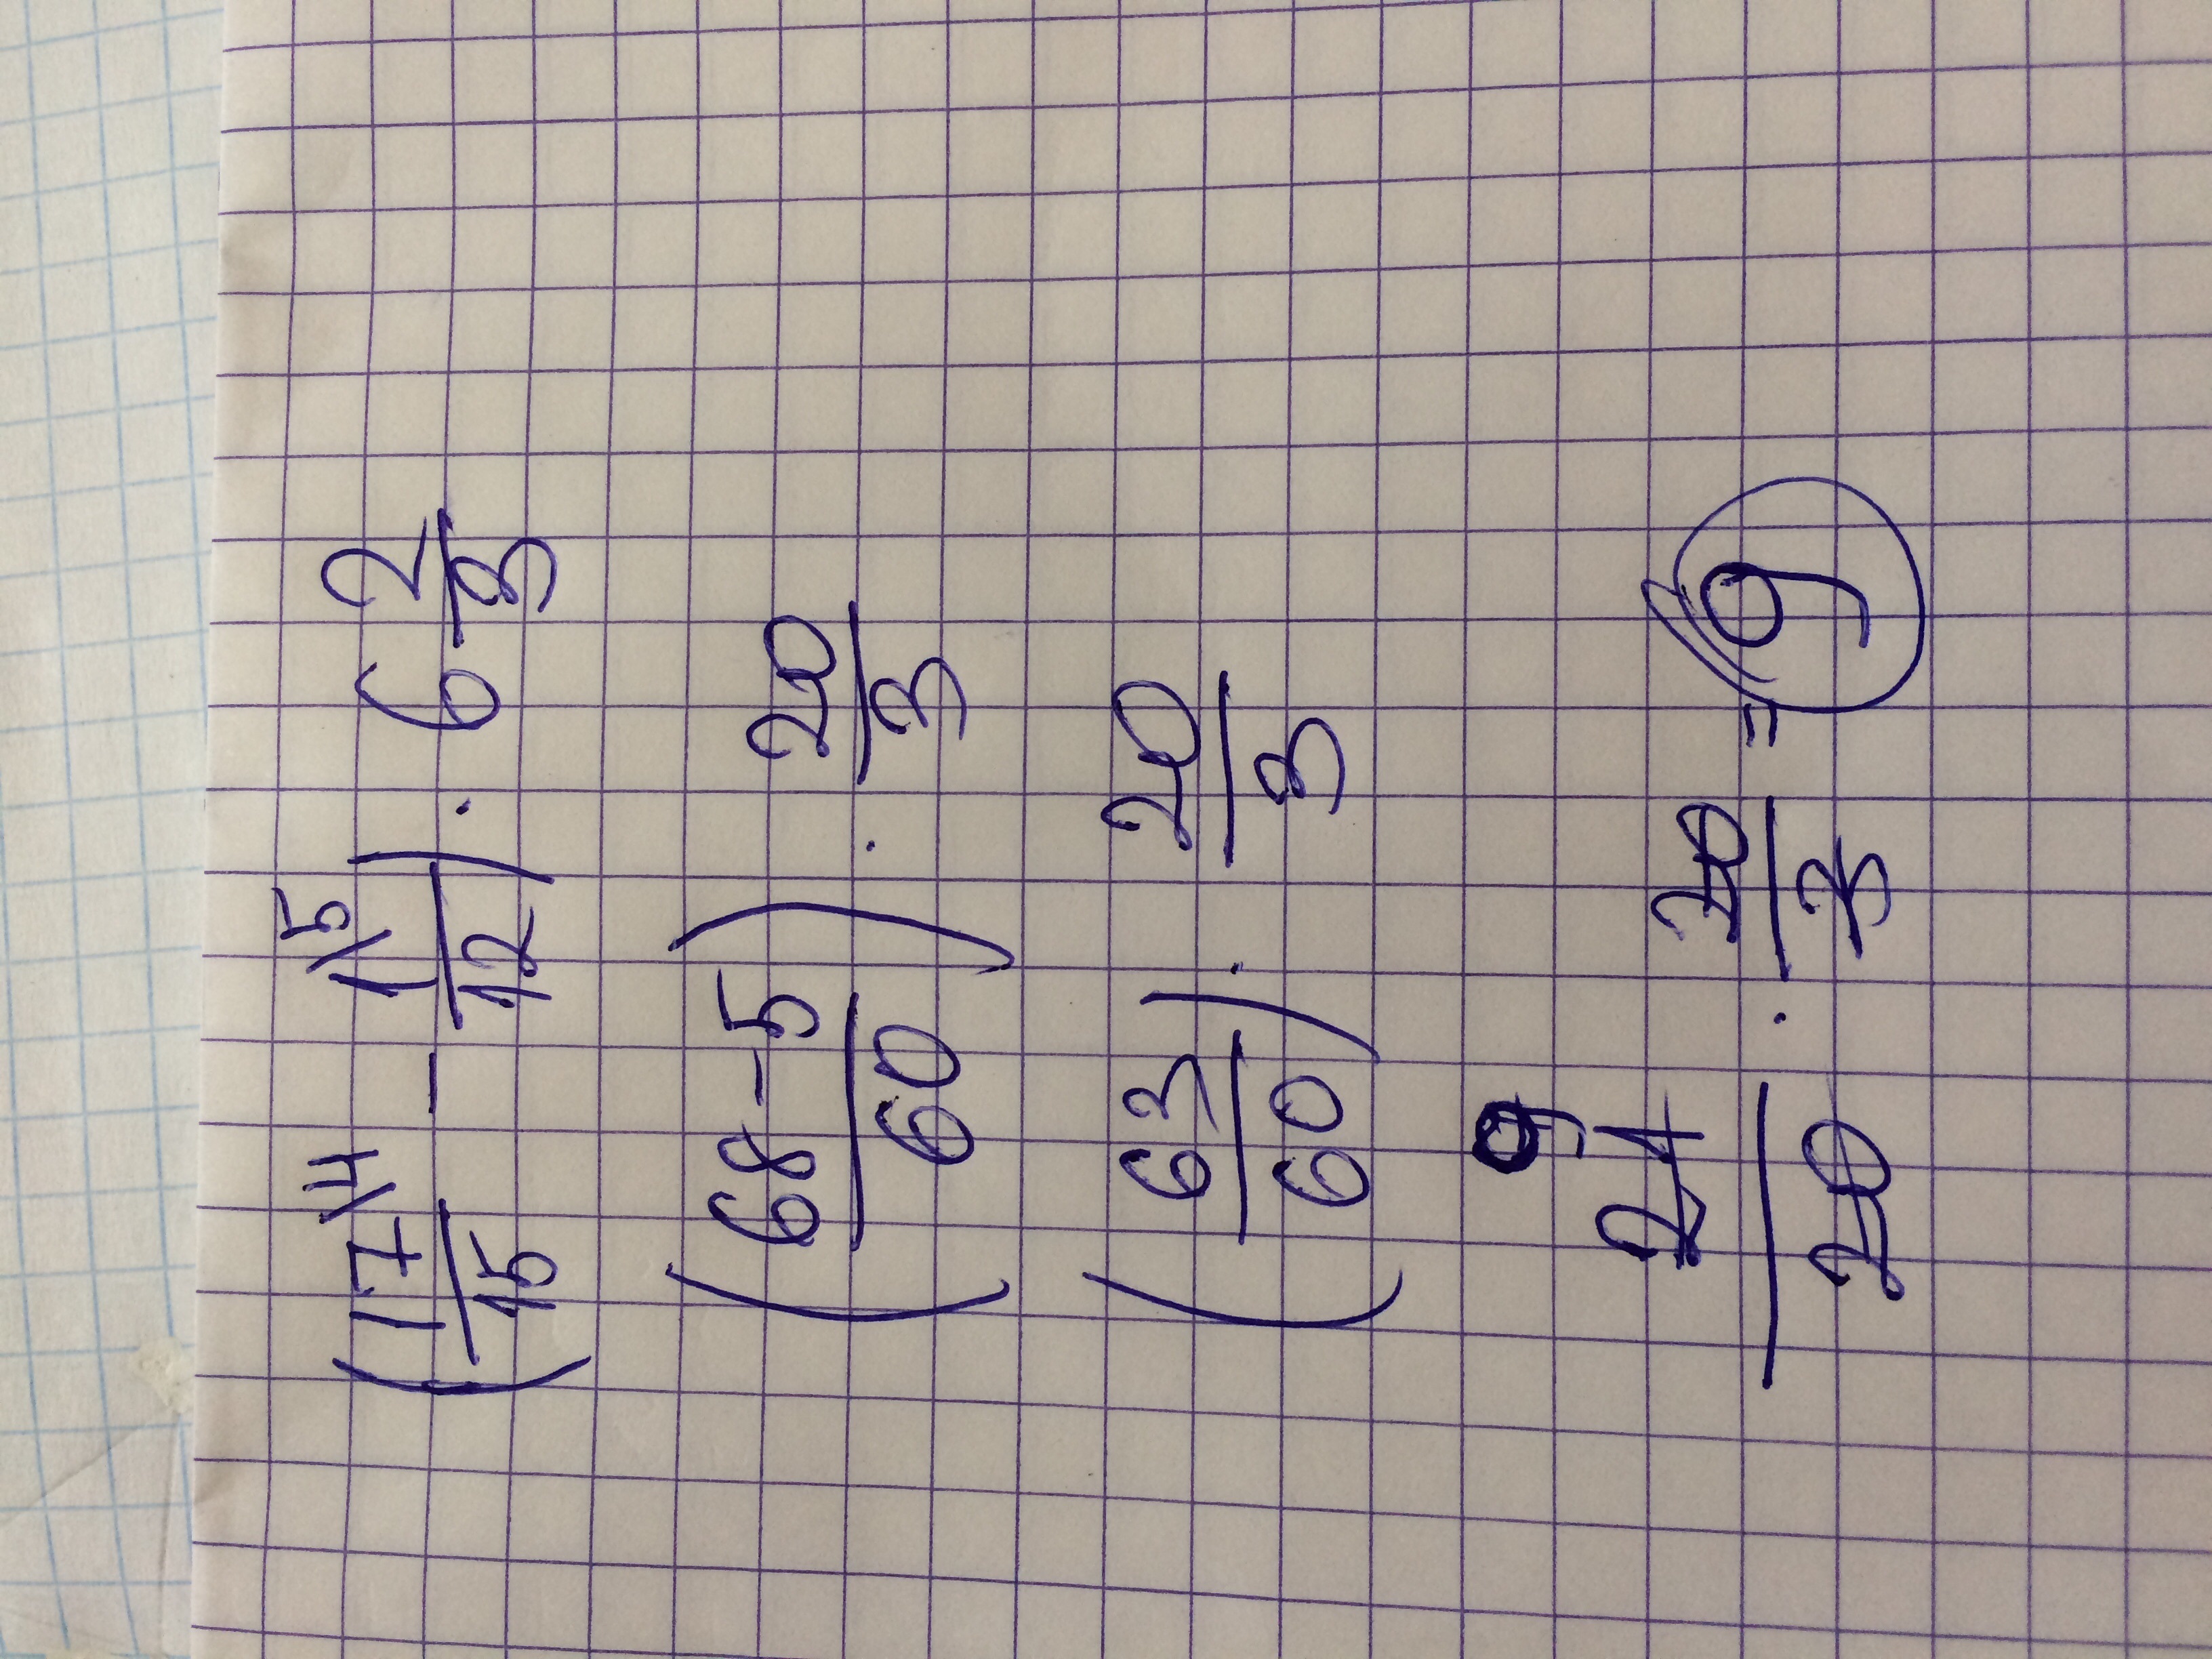 (17\4/15 - 1\5/12) · 6 2/3
(68-5/60) · 20/3
(63/60) · 20/3
9
21/20 · 20/3 = 9